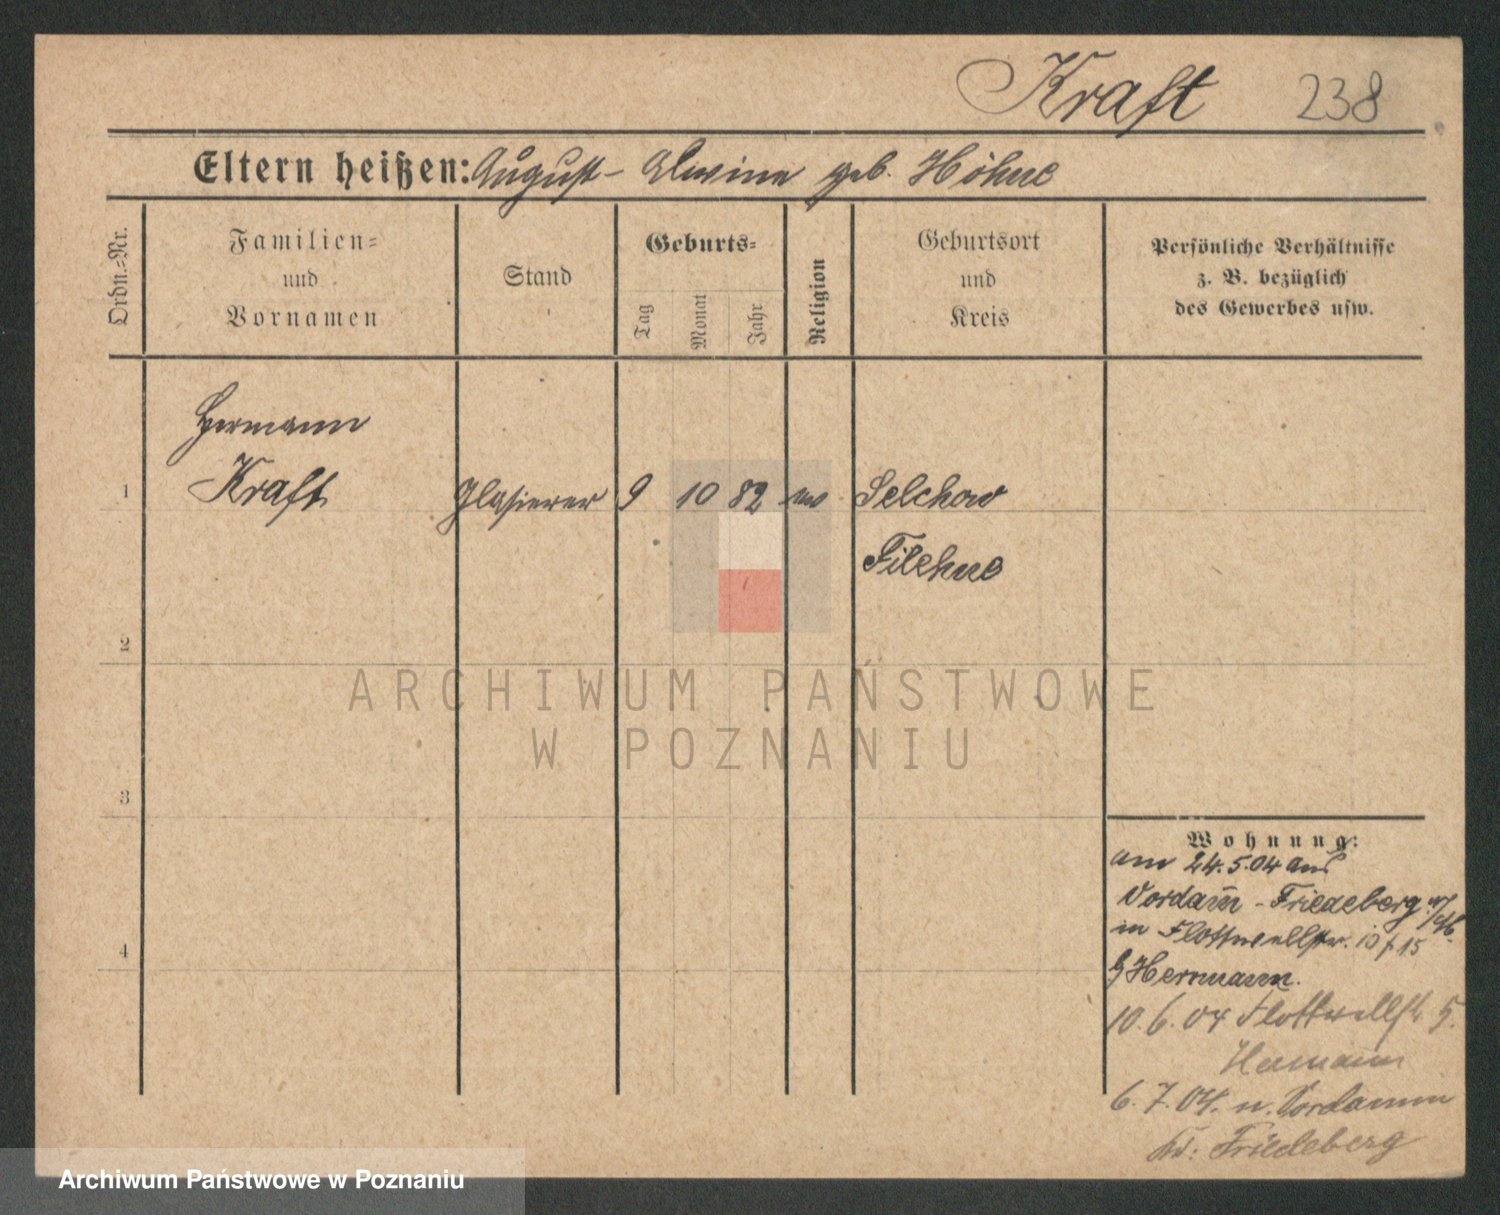 Kraft 238
Eltern heißen: August - Alwine geb. Höhne
Ordn.-Nr.
Familien-
und
Vornamen
Stand
Geburts-
Tag
Monat
Jahr
Religion
Geburtsort
und
Kreis
Persönliche Verhältnisse
z. B. bezüglich
des Gewerbes usw.
Hermann
1 Kraft Glasierer 9 10 82 ev Selchow
Filehne
2
ARCHIWUM PAŃSTWOWE
W POZNANIU
3
Wohnung:
am 24.5.04 aus
Vordam̄ - Friedeberg
in Flottwellstr. 15
b/Herrmann.
10.6.04 Flottwellstr. 5.
4
Hermann
6.7.04. n. Vordamm
Kr: Friedeberg
Archiwum Państwowe w Poznaniu